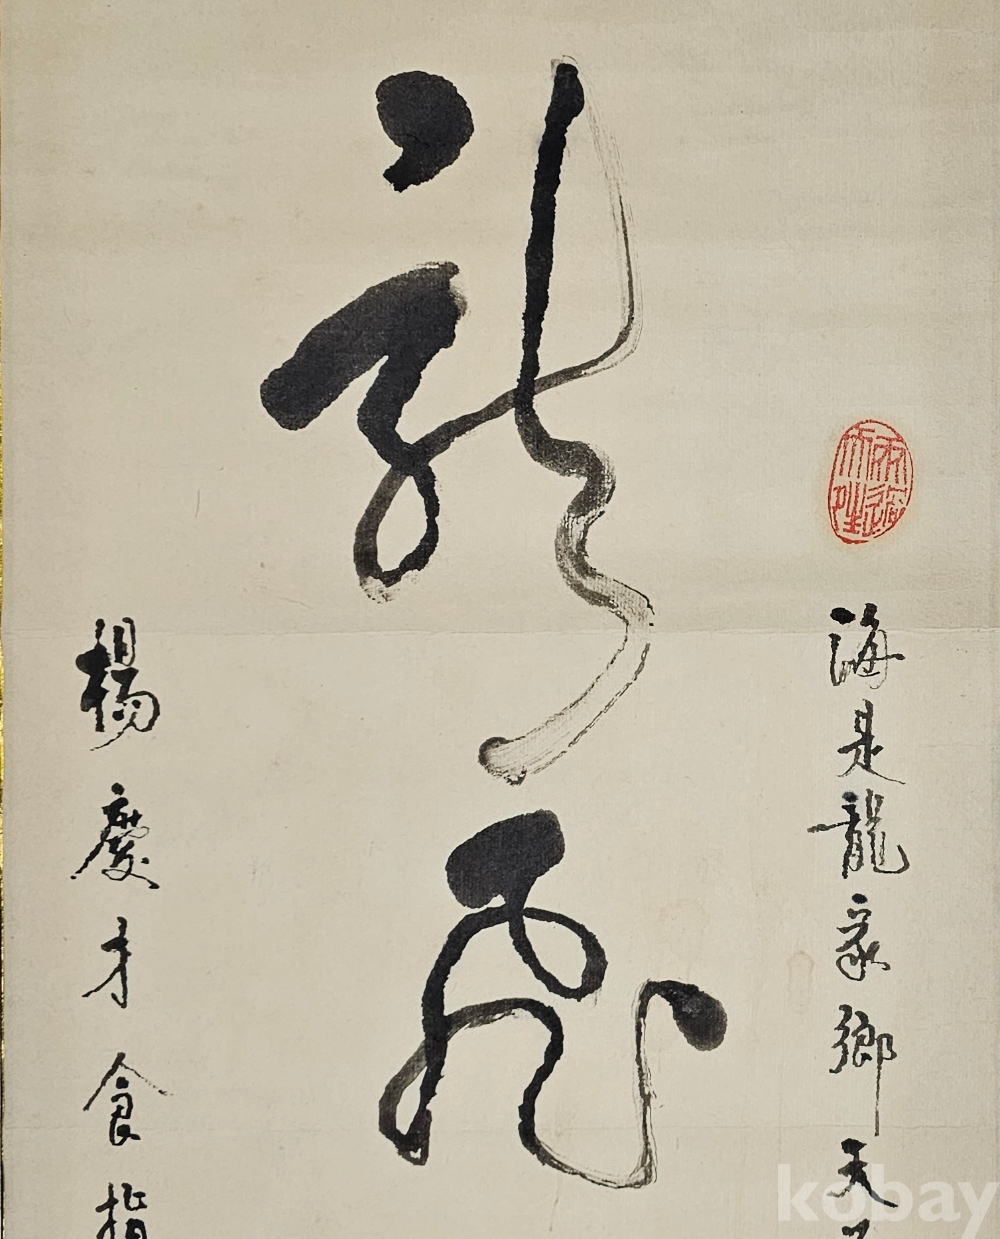 海是龍家鄉天
龍飛
楊慶才食指
kobay